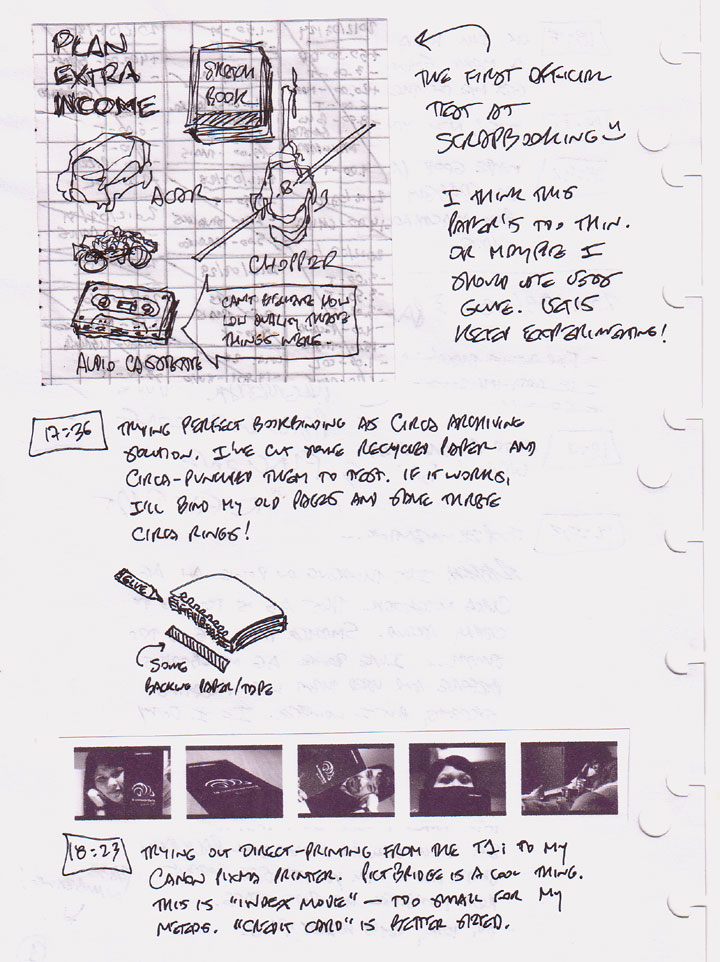 PLAN
EXTRA
INCOME
SKETCH
BOOK
CHOPPER
CAN'T BELIEVE HOW
LOW QUALITY THOSE
THINGS WERE.
AUDIO CASSETTE
THE FIRST OFFICIAL
TEST AT
SCRAPBOOKING
I THINK THIS
PAPER'S TOO THIN.
OR MAYBE I
SHOULD USE LESS
GLUE. LET'S
KEEP EXPERIMENTING!
17:36
TRYING PERFECT BOOKBINDING AS CIRCA ARCHIVING
SOLUTION. I'VE CUT SOME RECYCLED PAPER AND
CIRCA-PUNCHED THEM TO TEST. IF IT WORKS,
I'LL BIND MY OLD PAGES AND SAVE THOSE
CIRCA RINGS!
GLUE
SOME
BACKING PAPER/TAPE
18:23
TRYING OUT DIRECT-PRINTING FROM THE T1i TO MY
CANON PIXMA PRINTER. PICTBRIDGE IS A COOL THING.
THIS IS "INDEX MOVIE" — TOO SMALL FOR MY
NEEDS. "CREDIT CARD" IS BETTER SIZED.